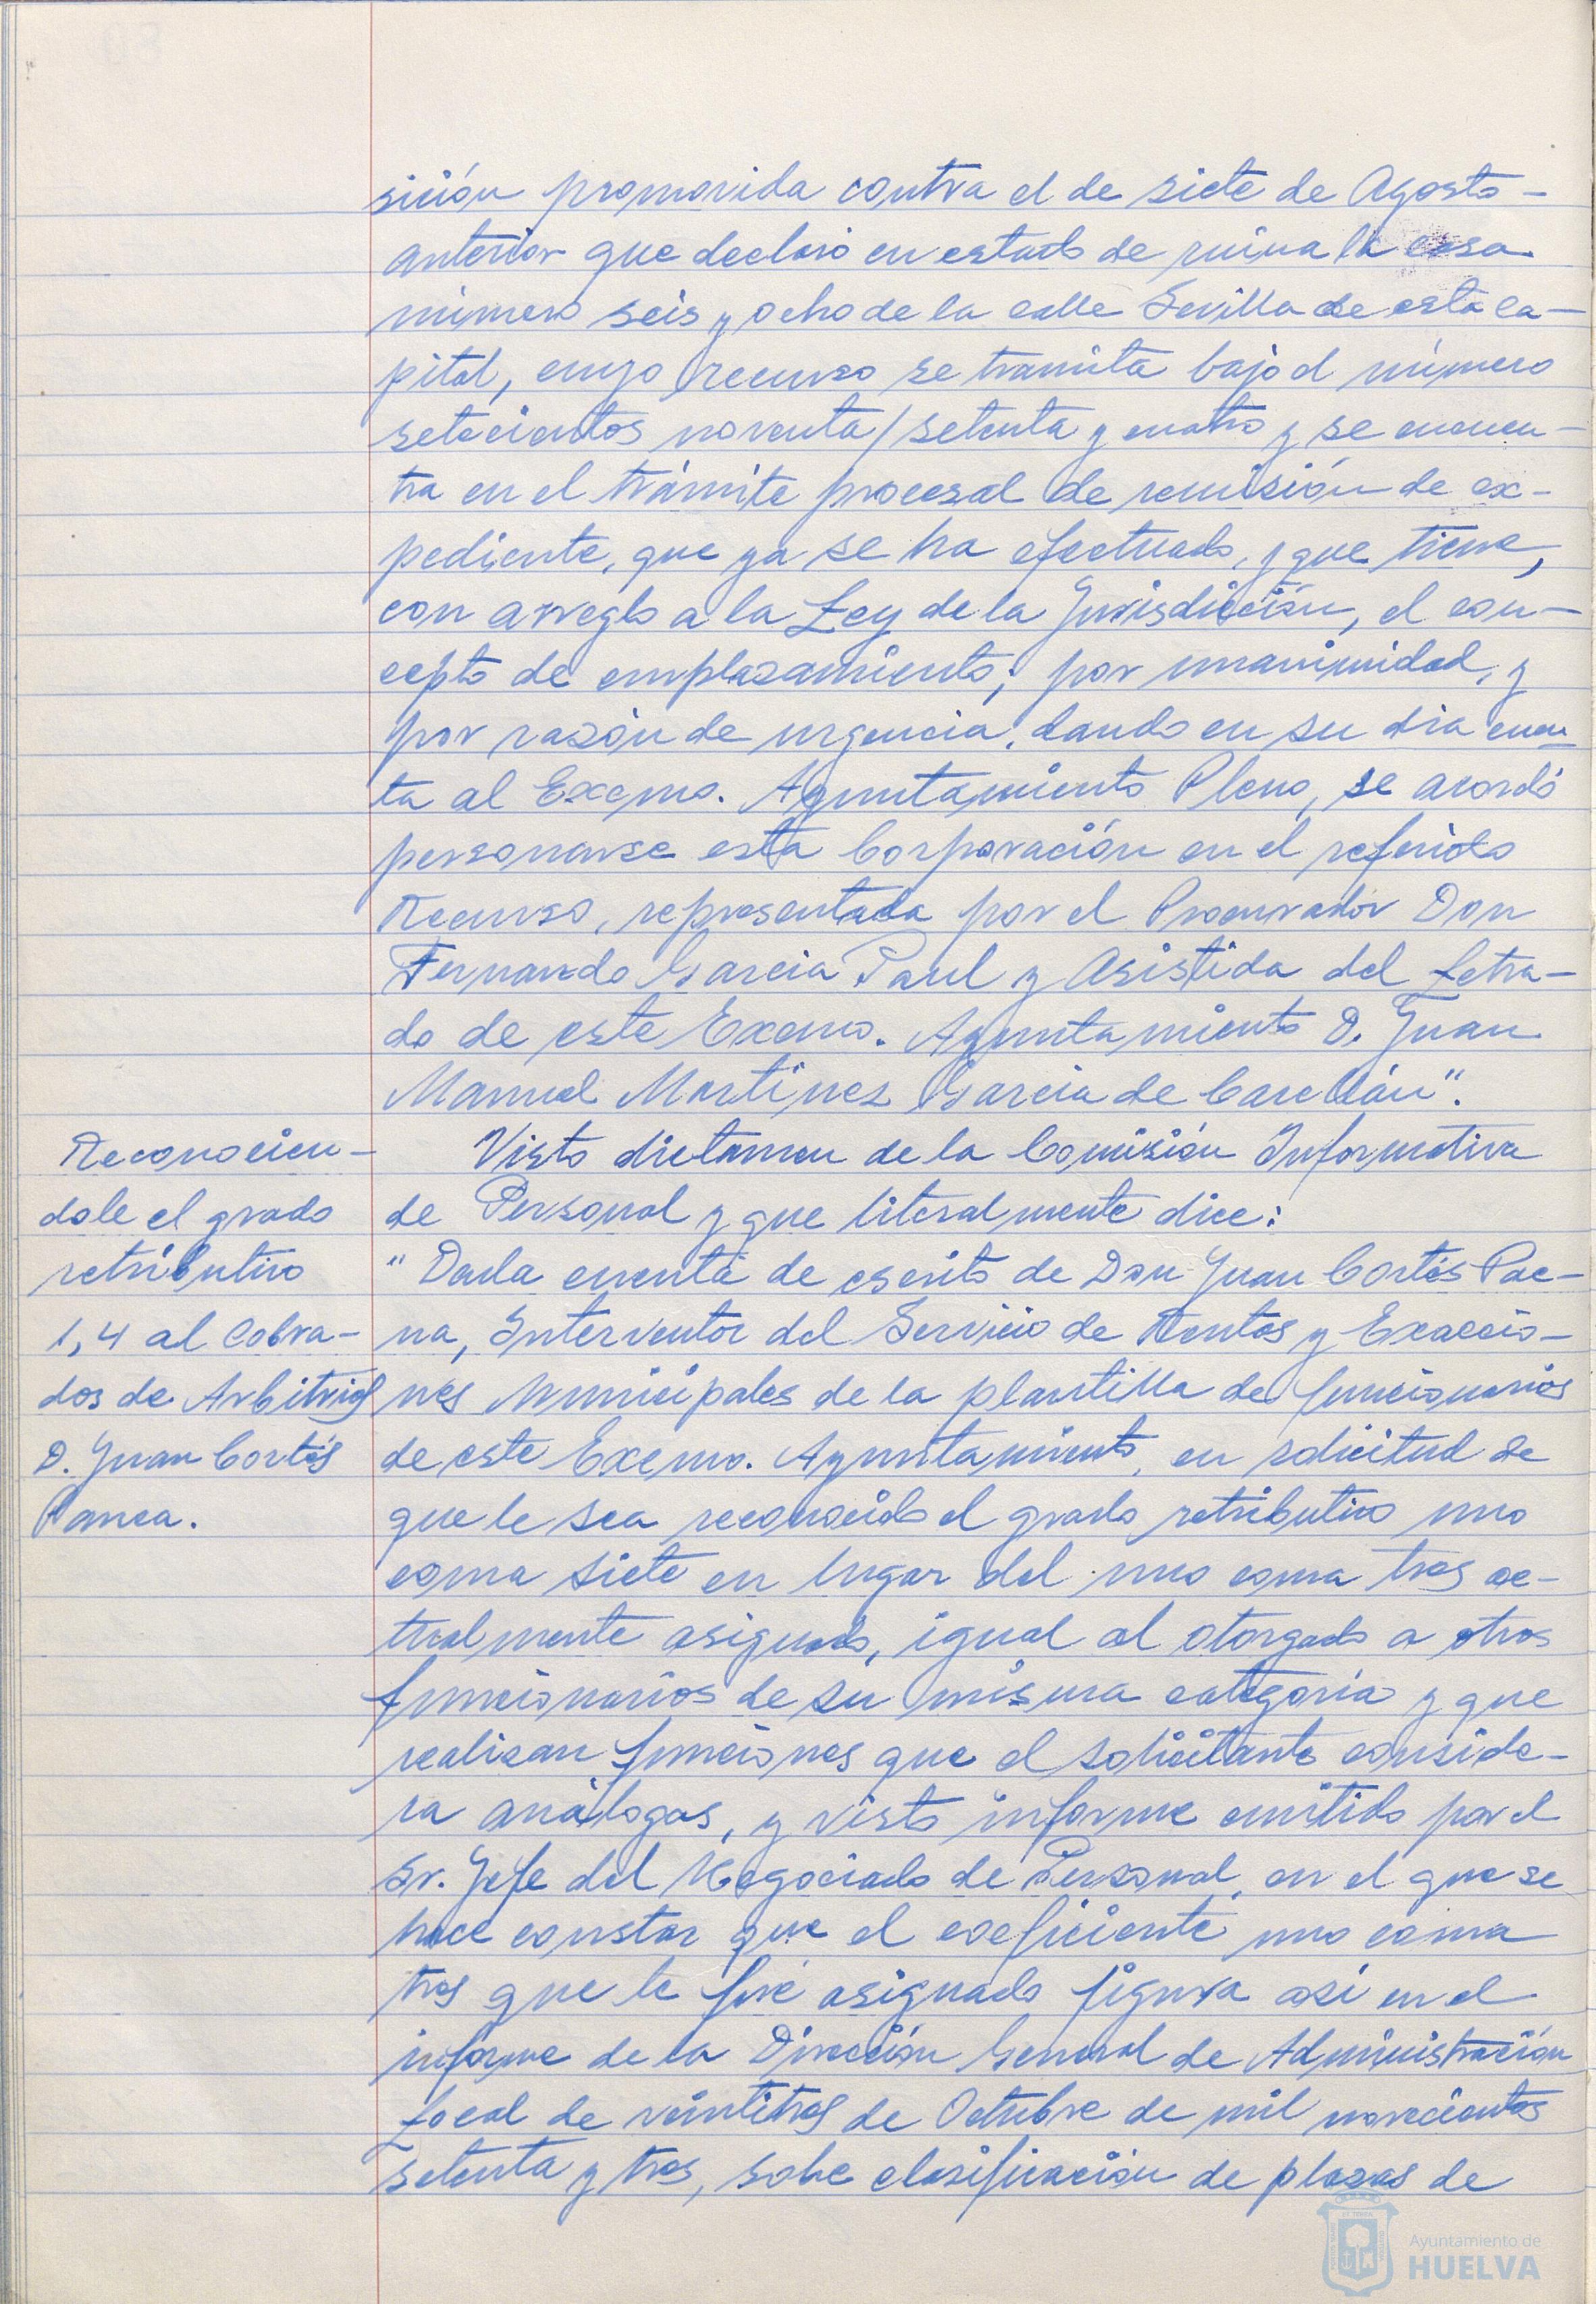 sición promovida contra el de siete de Agosto-
anterior que declaró en estado de ruina la casa
número seis y ocho de la calle Sevilla de esta ca-
pital, cuyo recurso se tramita bajo el número
setecientos noventa/setenta y cuatro y se encuen-
tra en el trámite procesal de remisión de ex-
pediente, que ya se ha efectuado, y que tiene,
con arreglo a la Ley de la Jurisdicción, el con-
cepto de emplazamiento; por unanimidad, y
por razón de urgencia, dando en su dia cuen-
ta al Excmo. Ayuntamiento Pleno, se acordó
personarse esta Corporación en el referido
Recurso, representada por el Procurador Don
Fernando Garcia Paul y Asistida del Letra-
do de este Excmo. Ayuntamiento D. Juan
Manuel Martinez Garcia de Carellán".
Reconocien-
dole el grado
retributivo
1,4 al Cobra-
dos de Arbitrios
D. Juan Cortés
Panea.
Visto dictamen de la Comisión Informativa
de Personal y que literalmente dice:
"Dada cuenta de escrito de Don Juan Cortés Pae-
na, Interventor del Servicio de Rentas y Exaccio-
nes Municipales de la plantilla de funcionarios
de este Excmo. Ayuntamiento, en solicitud de
que le sea reconocido el grado retributivo uno
coma siete en lugar del uno coma tres ac-
tualmente asignado, igual al otorgado a otros
funcionarios de su misma categoria y que
realizan funciones que el solicitante conside-
ra análogas, y visto informe emitido por el
Sr. Jefe del Negociado de Personal, en el que se
hace constar que el coeficiente uno coma
tres que le fué asignado figura asi en el
informe de la Dirección General de Administración
Local de veintitres de Octubre de mil novecientos
setenta y tres, sobre clasificación de plazas de
Ayuntamiento de
HUELVA